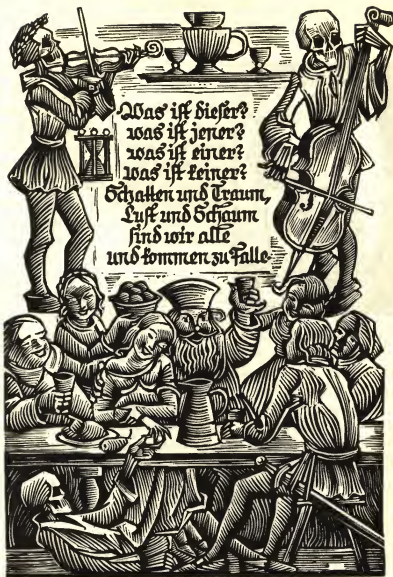 Was ist dieser?
was ist jener?
was ist einer?
was ist keiner?
Schatten und Traum,
Lust und Schaum
sind wir alle
und kommen zu Falle.